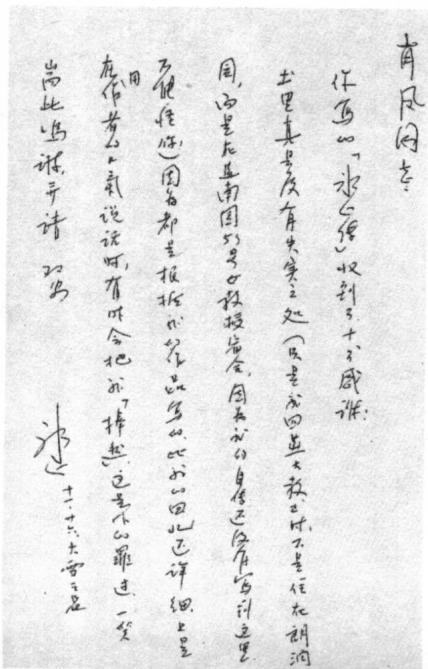 肖凤同志：
你写的「冰心传」收到了，十分感谢。
书里真是没有失实之处（只是我回燕大教书时，不是住在朗润
园，而是在燕南园53号女教授宿舍，因为我的自传还没有写到这里，
不能怪你）因为都是根据我的作品写的，比我的回忆还详细。只是
在用作者的口气说话时，有时会把我「捧」起，这是你的罪过，一笑
耑此鸣谢，并请 双安
冰心
十一、十六、大雪之晨